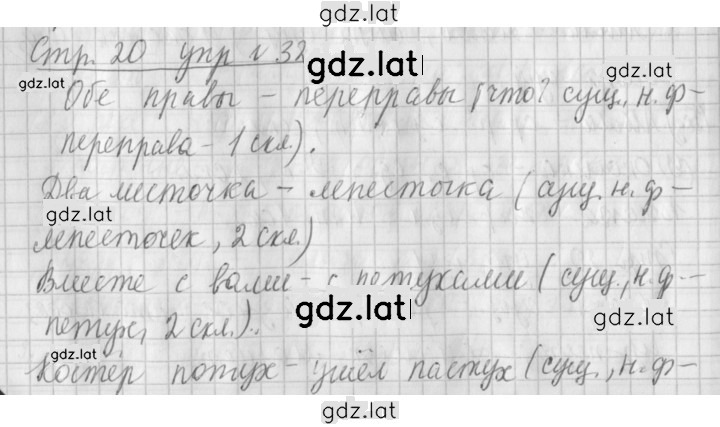 gdz.lat
Стр. 20 упр. 32
gdz.lat gdz.lat
Обе правы - переправы (что? сущ., н.ф-
gdz.lat
переправа - 1 скл.).
Два листочка - лепесточка (сущ. н.ф-
gdz.lat
лепесточек, 2 скл.)
Вместе с вами - с петухами (сущ., н.ф.-
gdz.lat gdz.lat
петух, 2 скл.).
gdz.lat
Костёр потух - ушёл пастух (сущ., н.ф-
gdz.lat